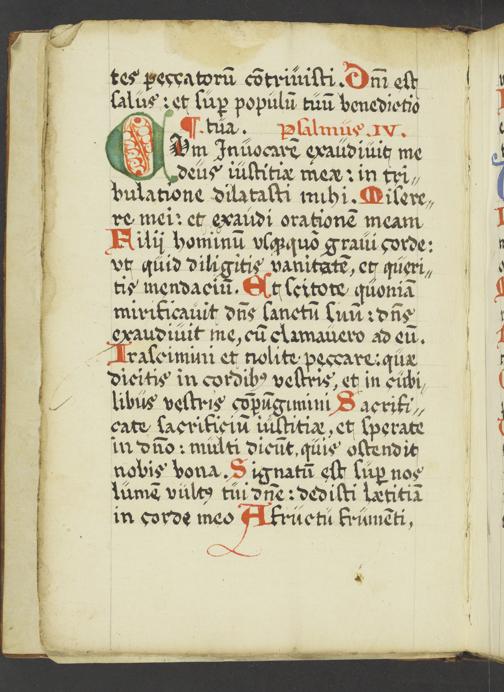 tes peccatorū cōtriuisti. Dn̄i est
salus: et sup̱ populū tuū benedictio
¶. tua. Psalmus. IV.
Cum Inuocarē exaudiuit me
deus iustitiæ meæ: in tri„
bulatione dilatasti mihi. Misere„
re mei: et exaudi orationē meam
Filij hominū vsq̄quō graui corde:
vt quid diligitis vanitatē, et queri„
tis mendaciū. Et scitote quoniā
mirificauit dn̄s sanctū suū: dn̄s
exaudiuit me, cū clamauero ad eū.
Irascimini et nolite peccare: quæ
dicitis in cordibꝰ vestris, et in cubi„
libus vestris cōpūgimini Sacrifi„
cate sacrificiū iustitiæ, et sperate
in dn̄o: multi dicūt, quis ostendit
nobis bona. Signatū est sup̱ nos
lumē vultꝰ tui dn̄e: dedisti lætitiā
in corde meo A fructu frumēti,